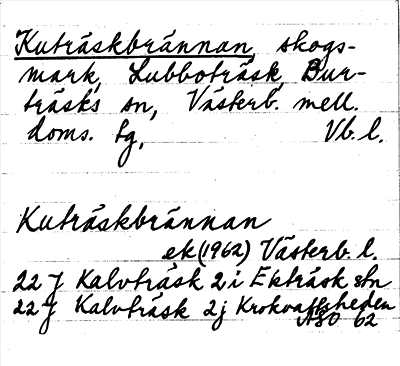 Kuträskbrännan, skogs-
mark, Lubboträsk, Bur-
träsks sn, Västerb. mell.
doms. tg, Vb. l.
Kuträskbrännan
ek (1962) Västerb. l.
22 J Kalvträsk 2 i Ekträsk stn
22 J Kalvträsk 2 j Krokvattsheden
ASO 62